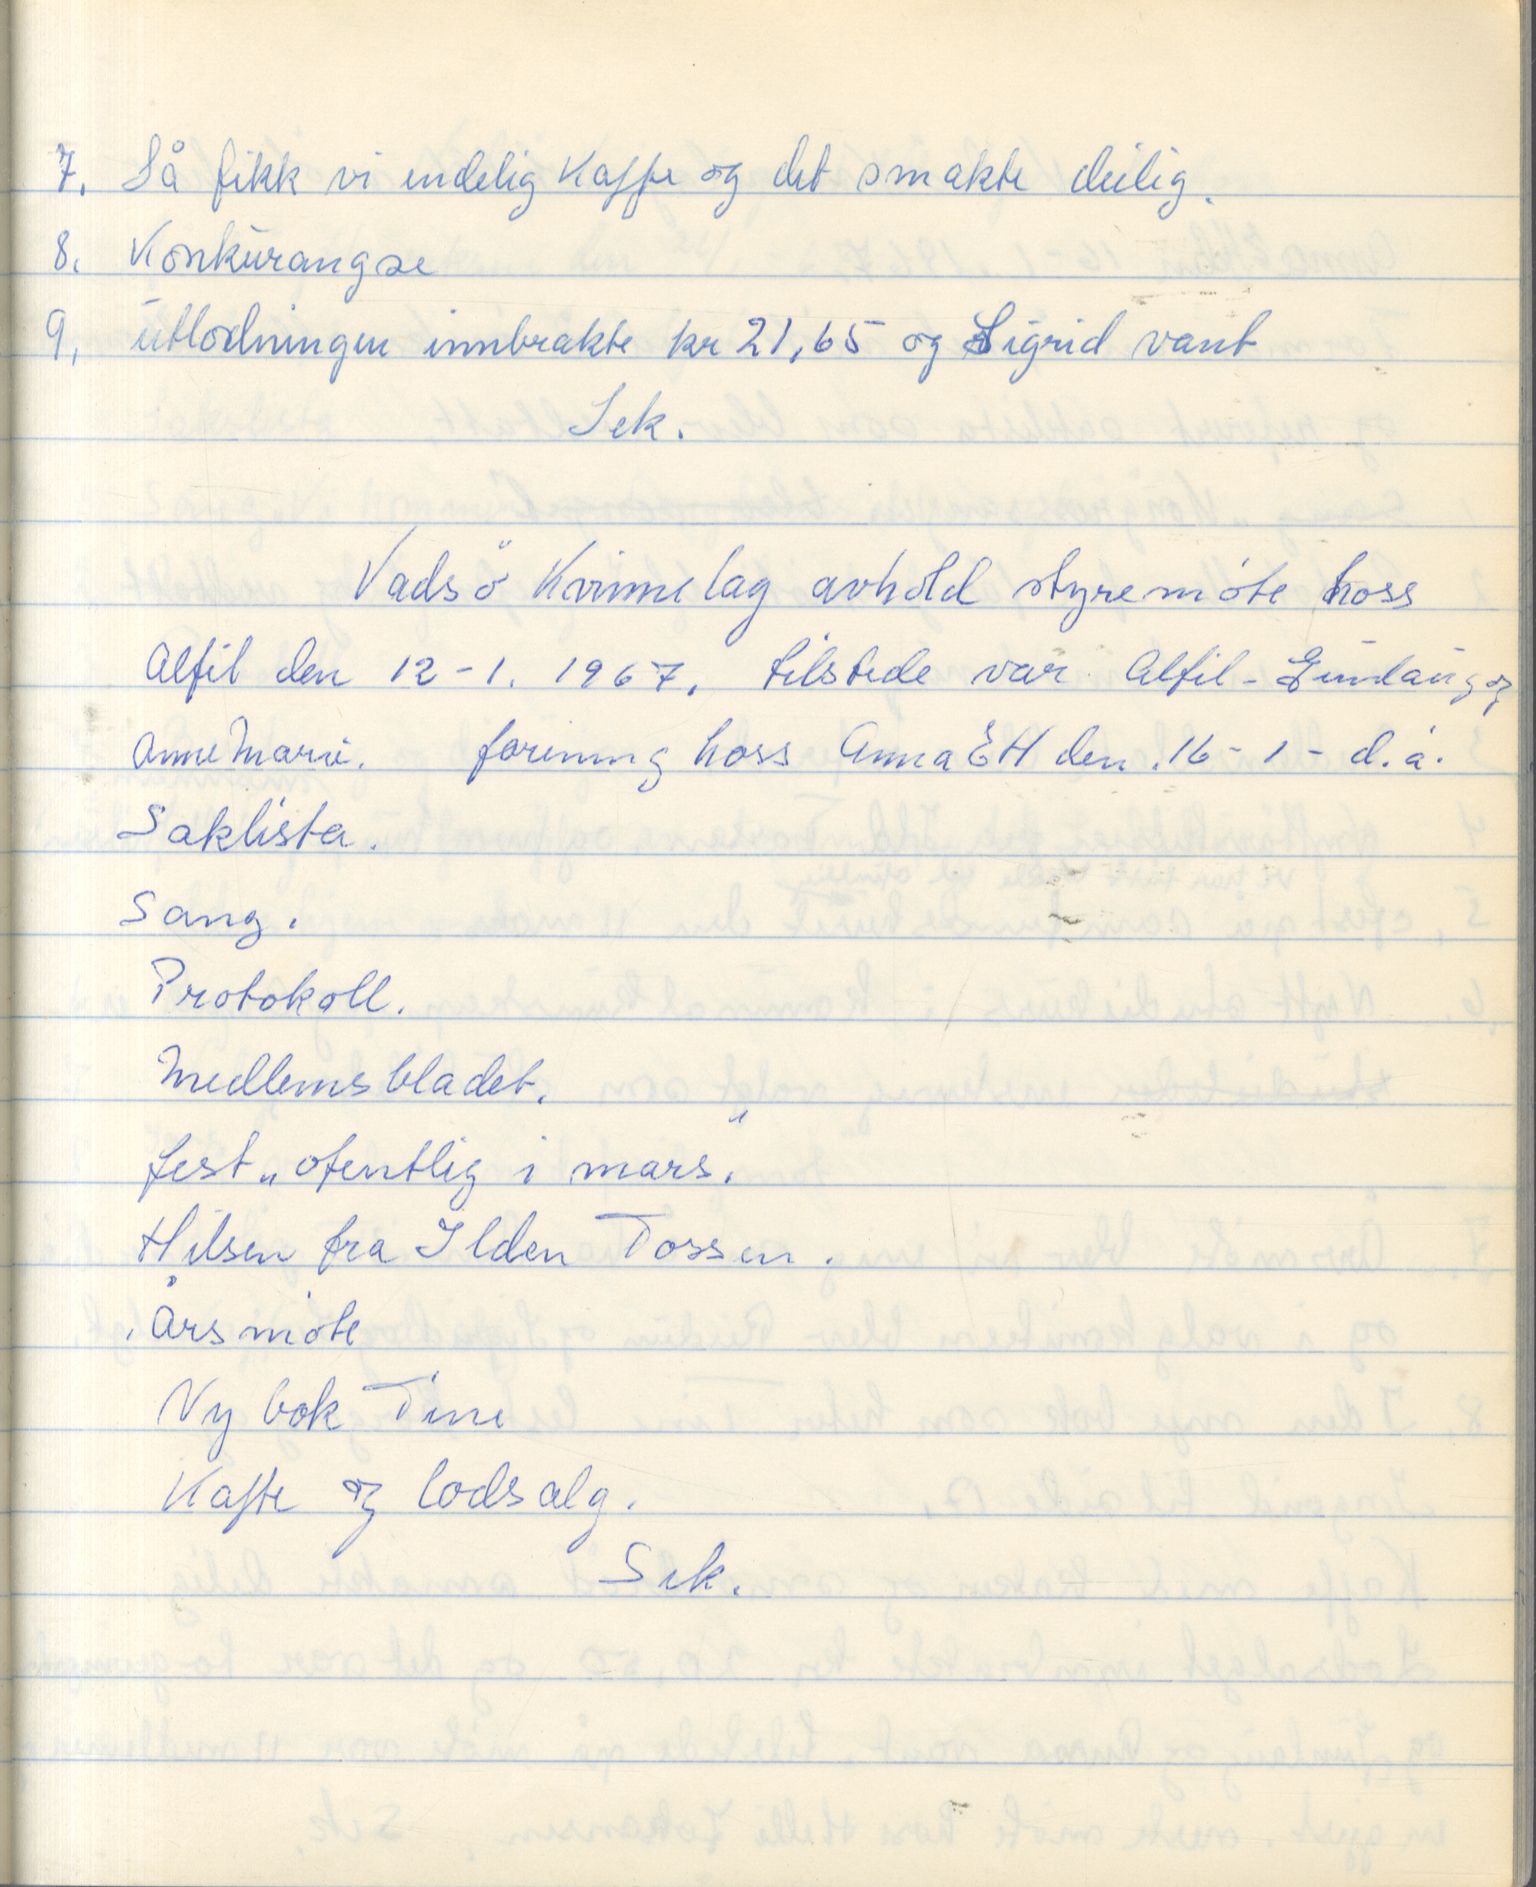 7. Så fikk vi endelig Kaffe og det smakte deilig.
8. Konkurangse
9. utlodningen innbrakte kr 21,65 og Sigrid vant
Sek.
Vadsö Kvinnelag avhold styremöte hoss
Alfil den 12-1. 1967. tilstede var Alfil - Gunlaug og
Anne Marie. forening hoss Anna E H den .16-1- d.å.
Saklista.
Sang.
Protokoll.
Medlemsbladet.
fest „ofentlig i mars."
Hilsen fra Ilden Tossen.
Årsmöte
Ny bok Tine
Kaffe og lodsalg.
Sek.